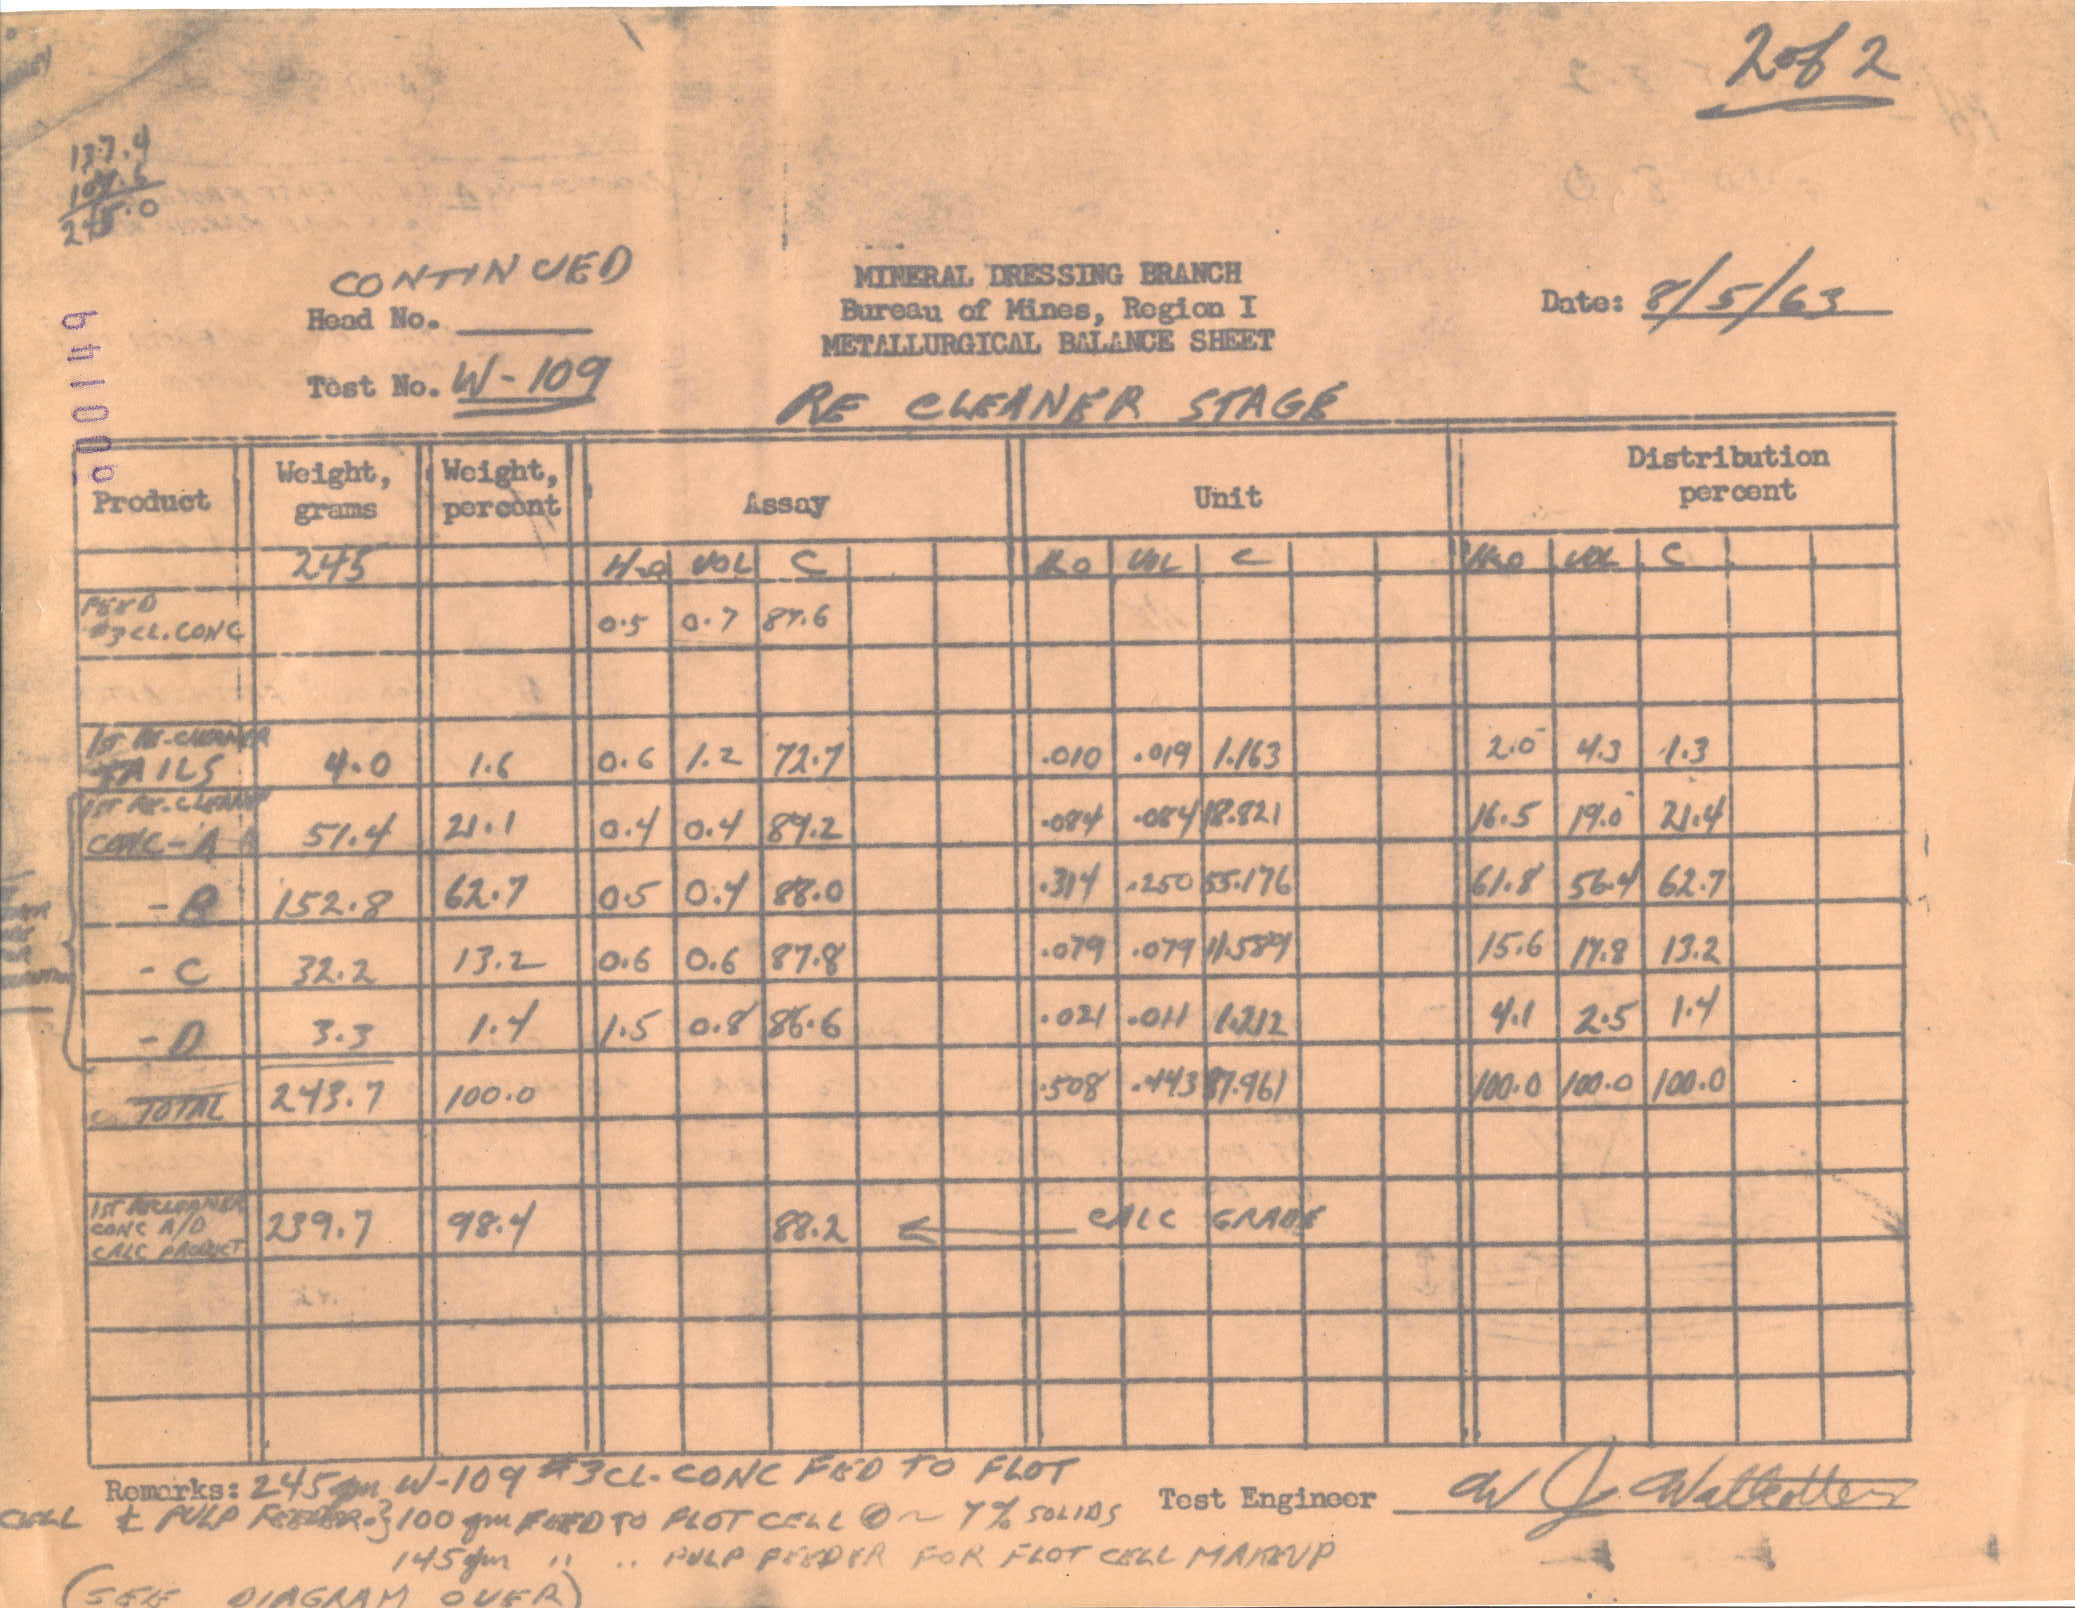 2 of 2
137.4
107.6
245.0
CONTINUED
Head No.
Test No. W-109
MINERAL DRESSING BRANCH
Bureau of Mines, Region I
METALLURGICAL BALANCE SHEET
RE CLEANER STAGE
Date: 8/5/63
Product Weight, grams Weight, percent Assay Unit Distribution percent
245 H2O VOL C H2O VOL C H2O VOL C
FEED #3 CL. CONC 0.5 0.7 87.6
1ST RE-CLEANER TAILS 4.0 1.6 0.6 1.2 72.7 .010 .019 1.163 2.0 4.3 1.3
1ST RE-CLEANER CONC - A 51.4 21.1 0.4 0.4 89.2 .084 .084 18.821 16.5 19.0 21.4
- B 152.8 62.7 0.5 0.4 88.0 .314 .250 55.176 61.8 56.4 62.7
- C 32.2 13.2 0.6 0.6 87.8 .079 .079 11.589 15.6 17.8 13.2
- D 3.3 1.4 1.5 0.8 86.6 .021 .011 1.212 4.1 2.5 1.4
TOTAL 243.7 100.0 .508 .443 87.961 100.0 100.0 100.0
1ST RECLEANER CONC A/D CALC PRODUCT 239.7 98.4 88.2 ← CALC GRADE
Remarks: 245 gm W-109 #3 CL-CONC FED TO FLOT
CELL & PULP FEEDER. } 100 gm FEED TO FLOT CELL @ ~ 7% SOLIDS
145 gm " " PULP FEEDER FOR FLOT CELL MAKEUP
(SEE DIAGRAM OVER)
Test Engineer W J